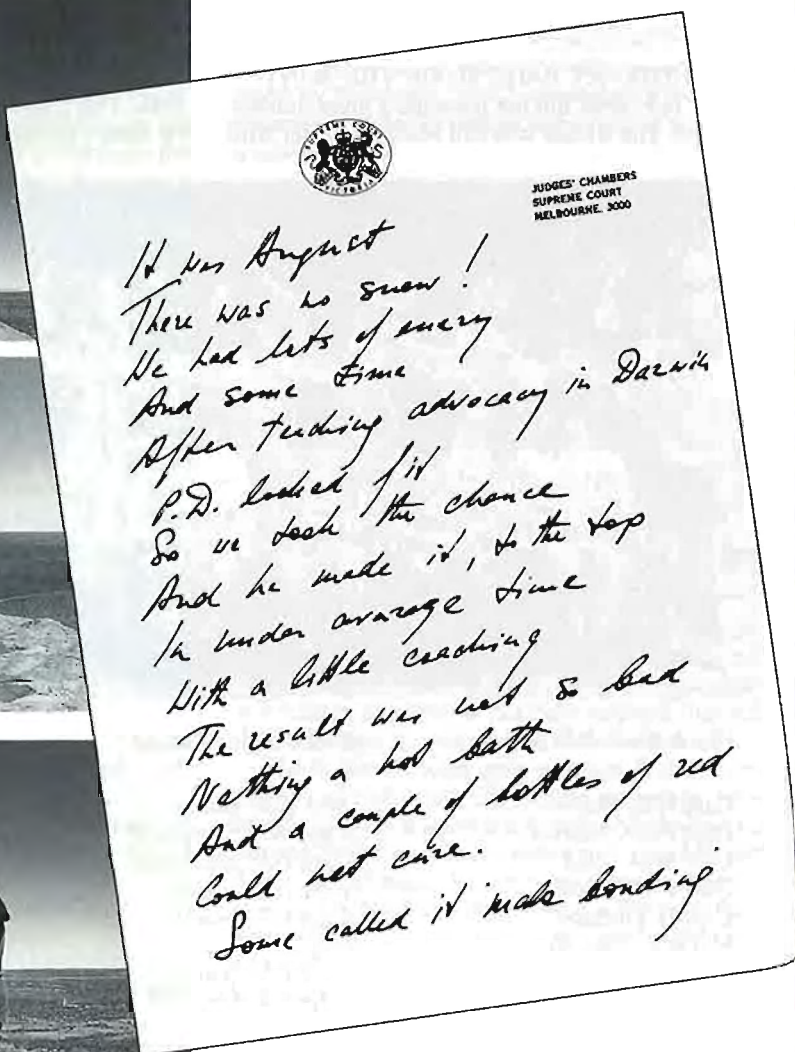 SUPREME COURT
VICTORIA
JUDGES' CHAMBERS
SUPREME COURT
MELBOURNE, 3000
It was August
There was no snow!
We had lots of energy
And some time
After teaching advocacy in Darwin
P.D. looked fit
So we took the chance
And he made it, to the top
In under average time
With a little coaching
The result was not so bad
Nothing a hot bath
And a couple of bottles of red
Could not cure.
Some called it male bonding